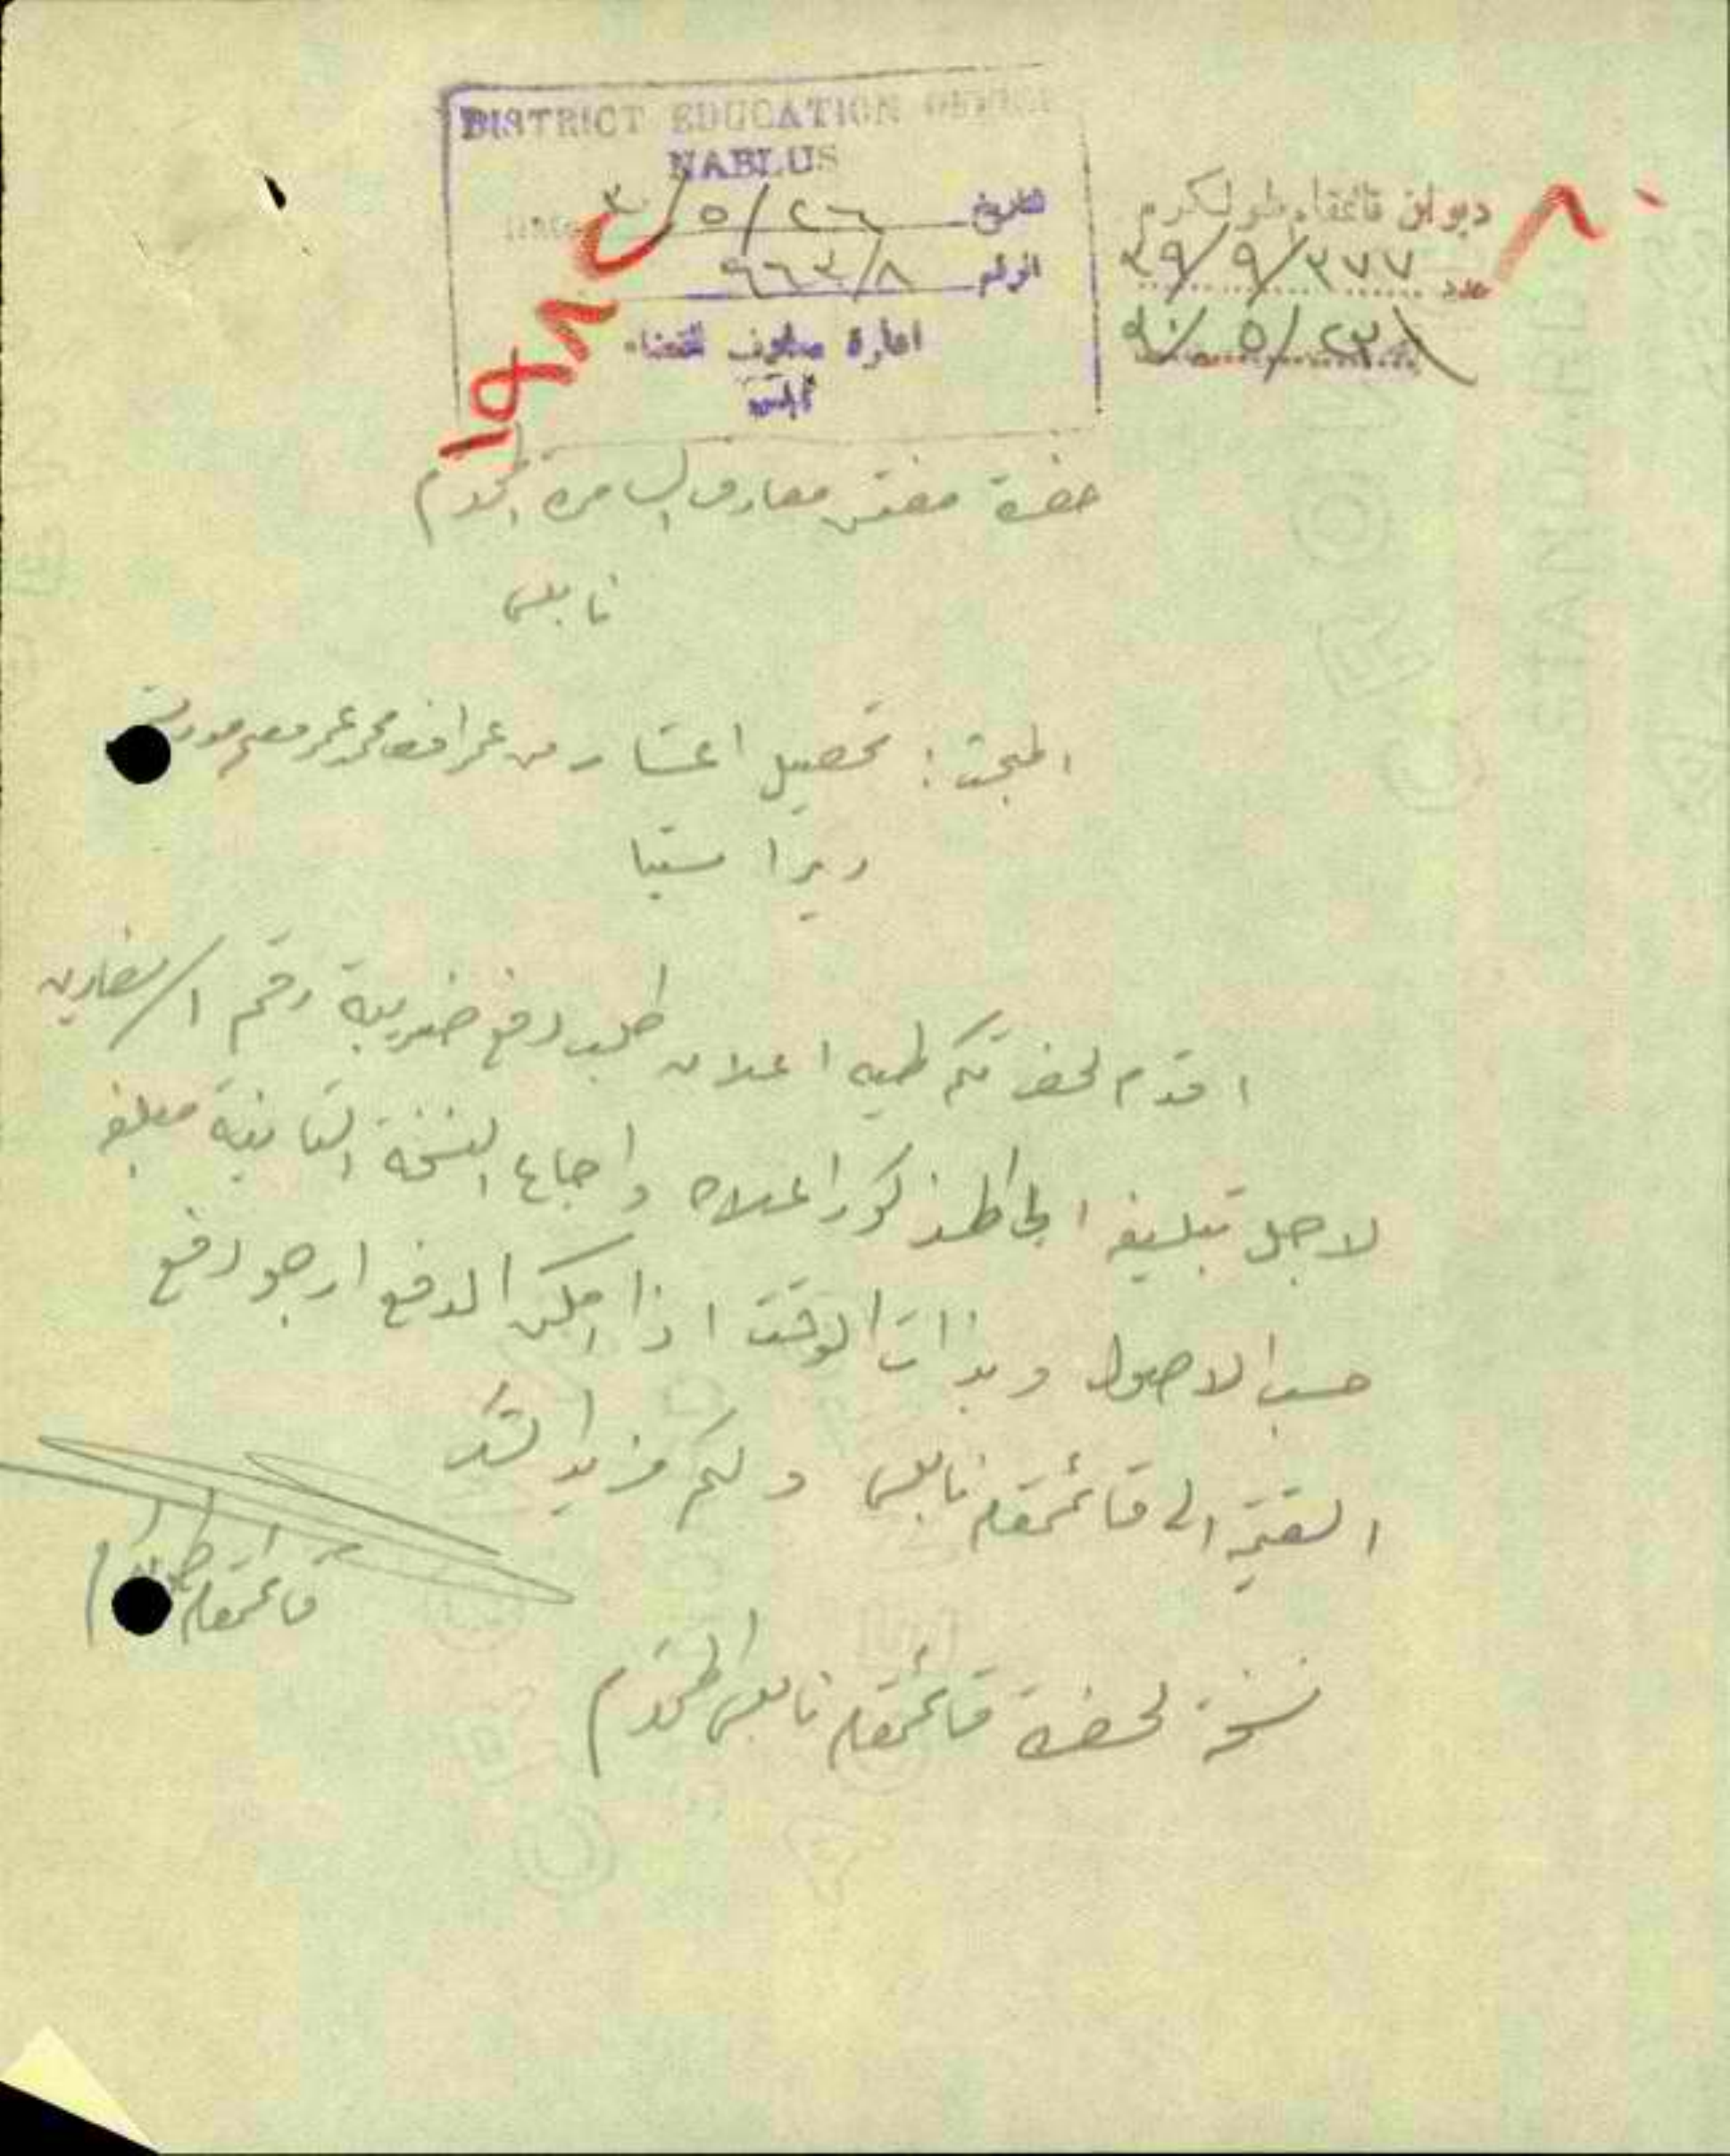 DISTRICT EDUCATION OFFICE
NABLUS
التاريخ ٢٦/٥/٣٠
الرقم ٩٦٣/٨
ادارة معارف القضاء
نابلس
ديوان قائمقام طولكرم
عدد ٣٧٧/٩/٣٩
٢٣/٥/
حضرة مفتش معارف السامره المحترم
نابلس
المبحث: تحصيل اعشار من عمر افندي محمد عمر معلم مدرسة
ديراستيا
اقدم لحضرتكم طيه اعلان طلب دفع ضريبة رقم ١/ سفارين
لاجل تبليغه الى المذكور اعلاه وارجاع النسخة الثانية مبلغه
حسب الاصول وبذات الوقت اذا امكن الدفع ارجو دفع
القيمة الى قائمقام نابلس ولكم مزيد الشكر
قائمقام طولكرم
نسخة لحضرة قائمقام نابلس المحترم